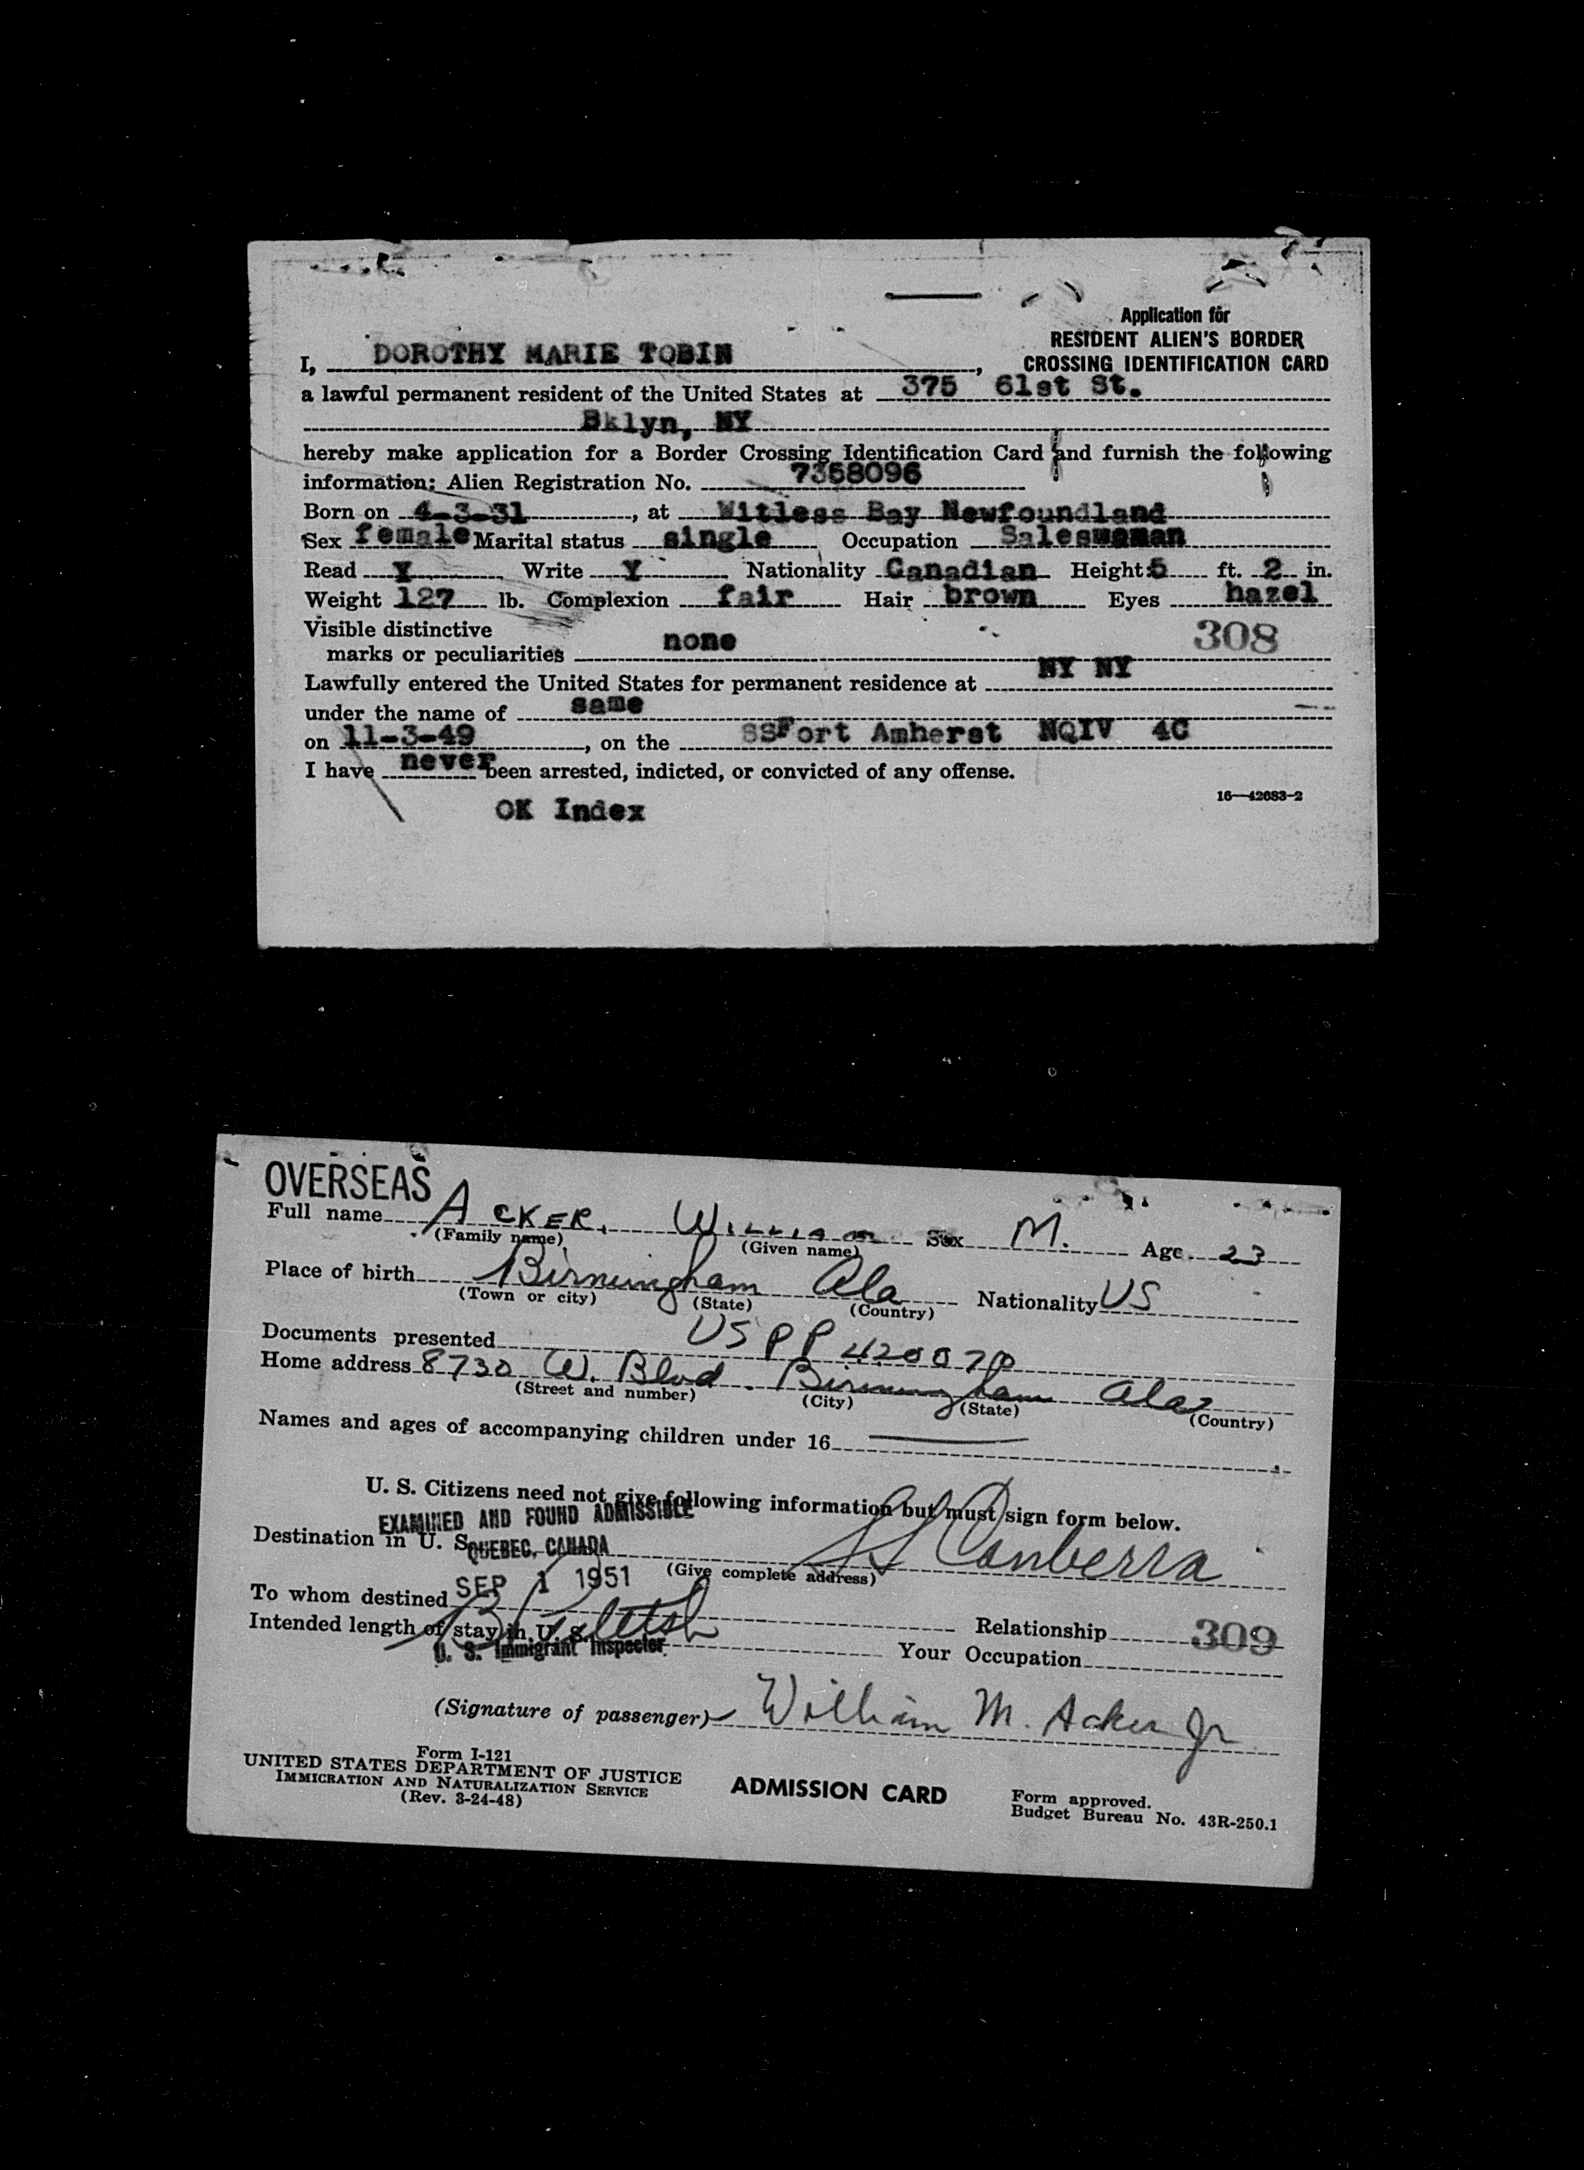 Application for
RESIDENT ALIEN'S BORDER
CROSSING IDENTIFICATION CARD
I, DOROTHY MARIE TOBIN,
a lawful permanent resident of the United States at 375 61st St.
Bklyn, NY
hereby make application for a Border Crossing Identification Card and furnish the following
information: Alien Registration No. 7358096
Born on 4-3-31, at Witless Bay Newfoundland
Sex female Marital status single Occupation Saleswoman
Read Y Write Y Nationality Canadian Height 5 ft. 2 in.
Weight 127 lb. Complexion fair Hair brown Eyes hazel
Visible distinctive
marks or peculiarities none 308
Lawfully entered the United States for permanent residence at NY NY
under the name of same
on 11-3-49, on the SSFort Amherst NQIV 4C
I have never been arrested, indicted, or convicted of any offense.
16—42683-2
OK Index
OVERSEAS
Full name ACKER, WILLIAM Sex M. Age 23
(Family name) (Given name)
Place of birth Birmingham Ala Nationality US
(Town or city) (State) (Country)
Documents presented US PP 420070
Home address 8730 W. Blvd. Birmingham Ala
(Street and number) (City) (State) (Country)
Names and ages of accompanying children under 16
U. S. Citizens need not give following information but must sign form below.
EXAMINED AND FOUND ADMISSIBLE
Destination in U. S. SS Canberra
QUEBEC, CANADA
(Give complete address)
To whom destined SEP 1 1951
Relationship 309
Intended length of stay in U. S.
U. S. Immigrant Inspector
Your Occupation
(Signature of passenger) William M. Acker Jr
Form I-121
UNITED STATES DEPARTMENT OF JUSTICE
IMMIGRATION AND NATURALIZATION SERVICE
(Rev. 3-24-48)
ADMISSION CARD
Form approved.
Budget Bureau No. 43R-250.1